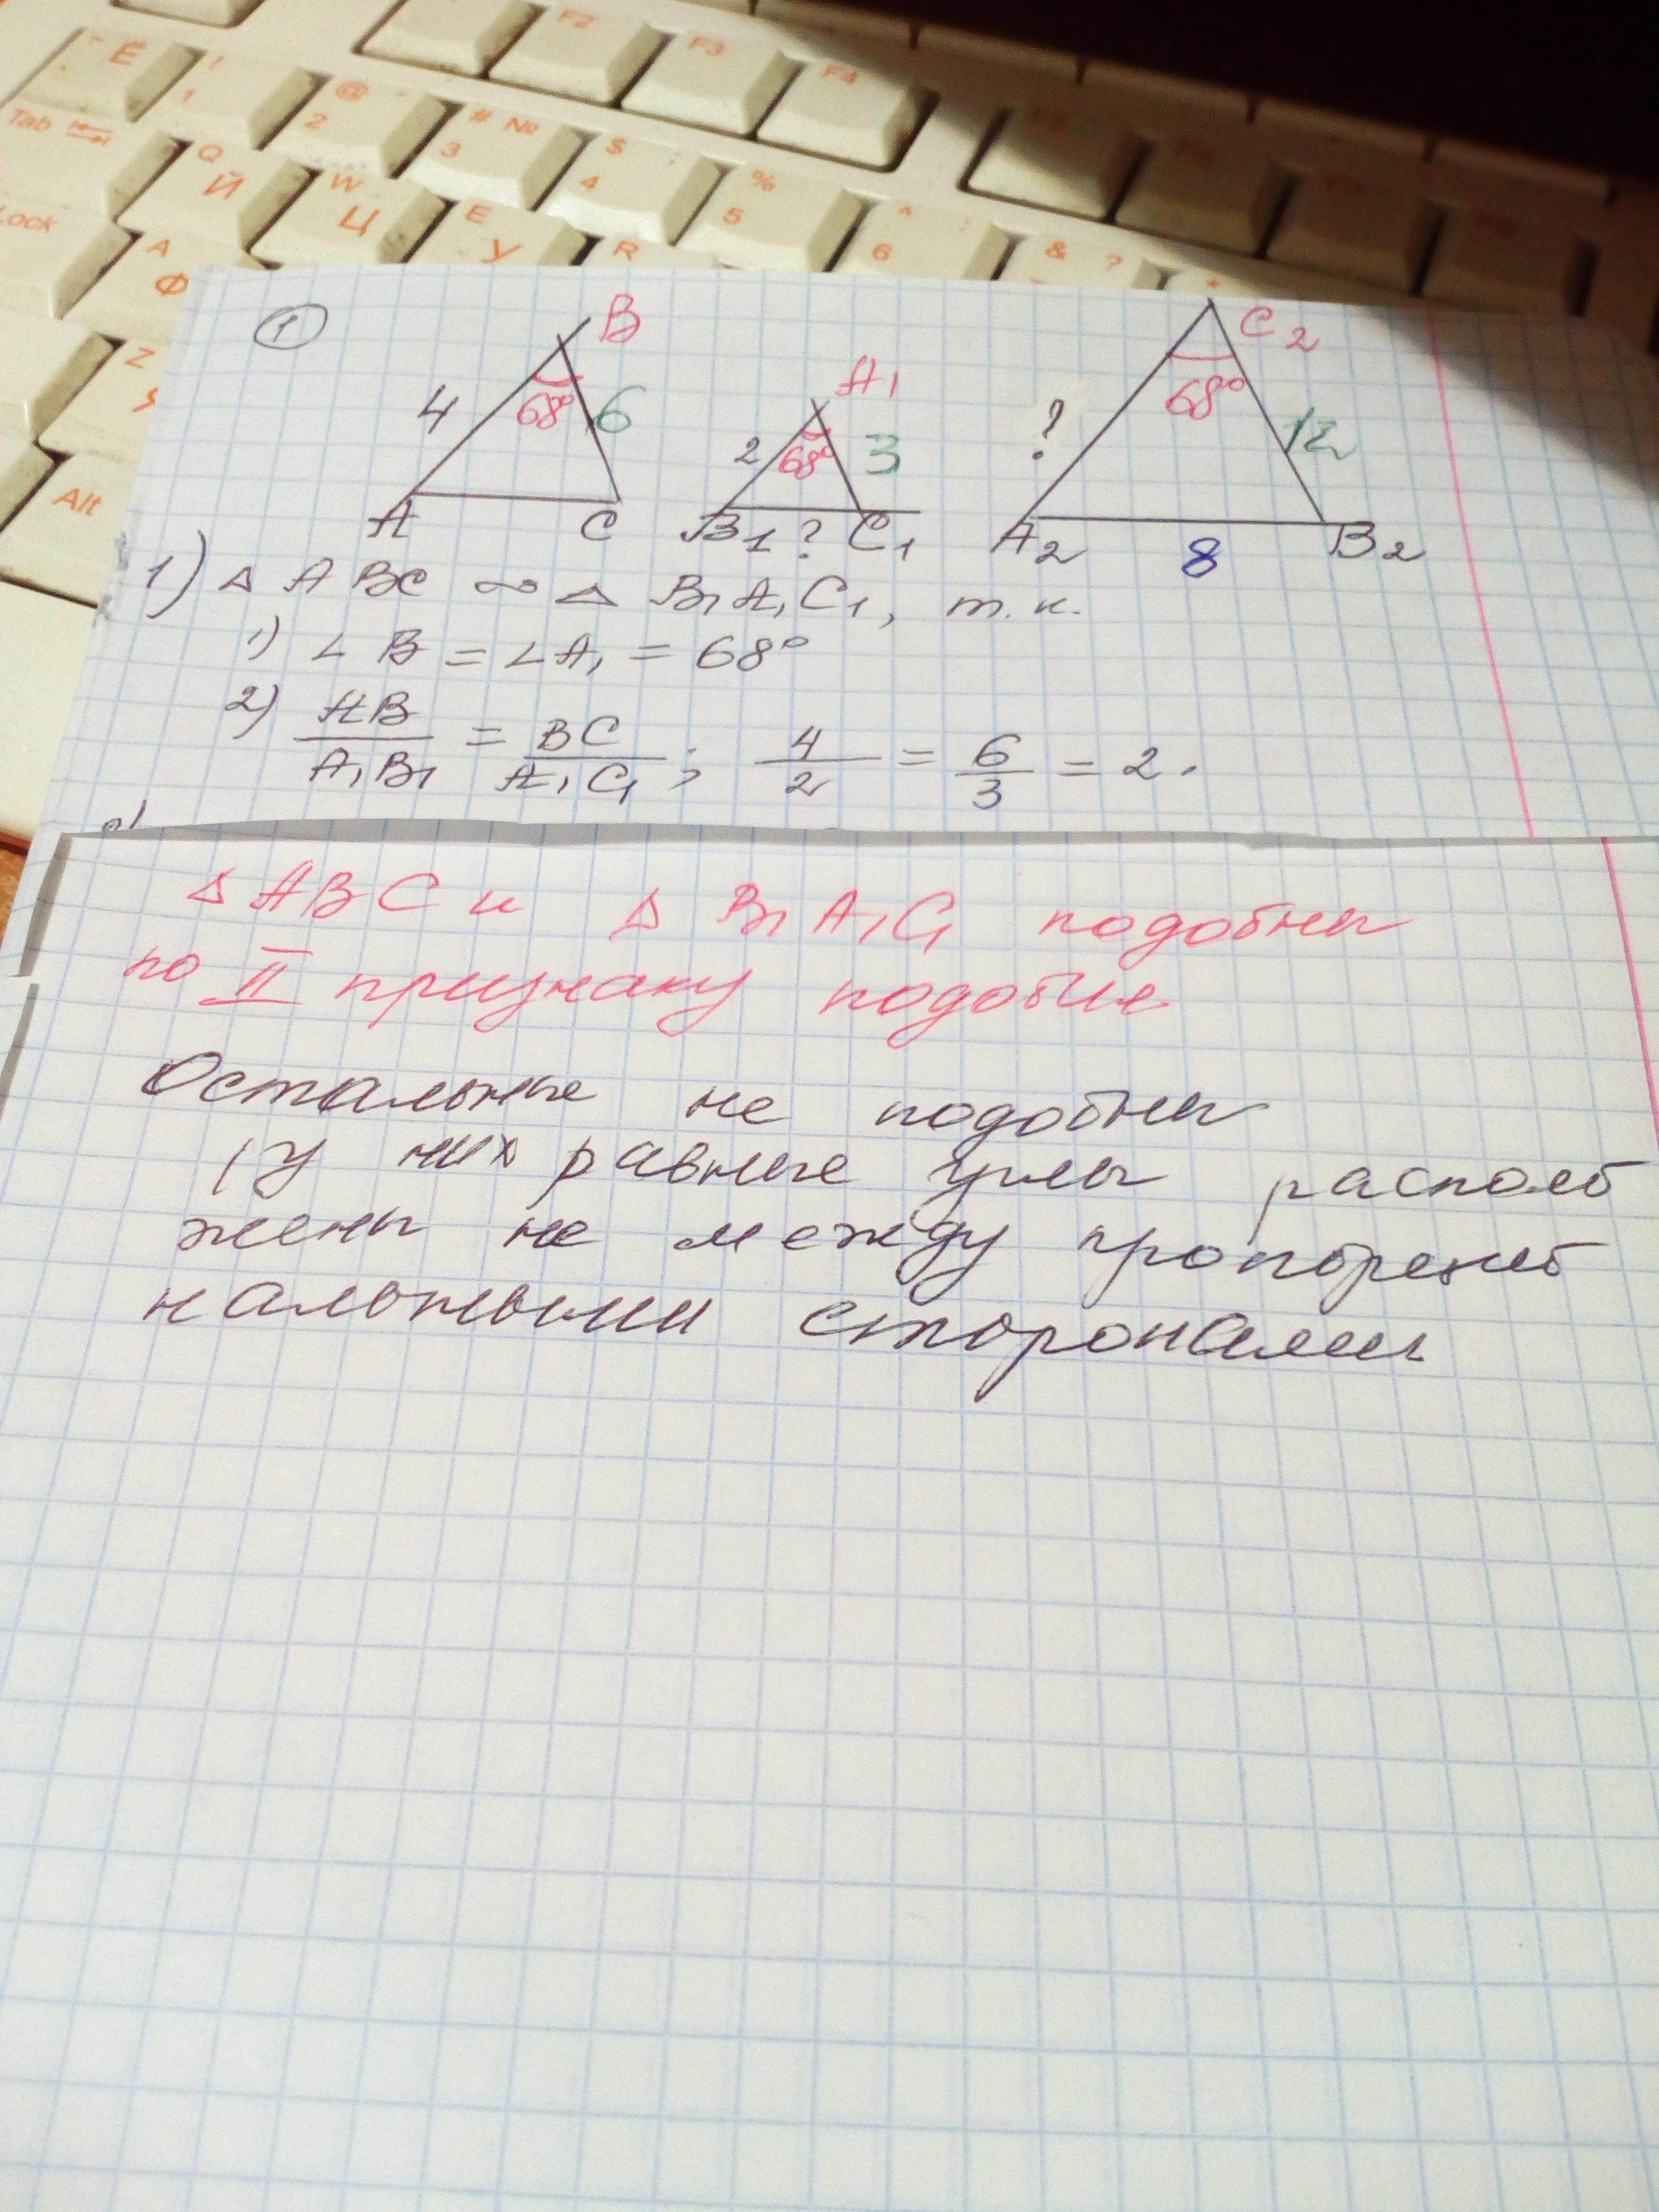 Ё ! 1 @ 2 # № 3 $ ; 4 % 5 ^ : 6 & ? *
F2 F3 F4
Tab Q Й W Ц E У R
Lock A Ф
Z
Alt
1
B 4 68° 6 A C
A1 2 68° 3 B1 ? C1
C2 ? 68° 12 A2 8 B2
1) △ ABC ∾ △ B1A1C1, т.к.
1) ∠ B = ∠A1 = 68°
2) AB/A1B1 = BC/A1C1; 4/2 = 6/3 = 2.
△ ABC и △ B1A1C1 подобны
по II признаку подобия
Остальные не подобны
(У них равные углы располо
жены не между пропорцио
нальными сторонами